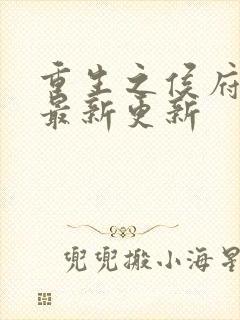 重生之侯府
最新更新
兜兜搬小海星